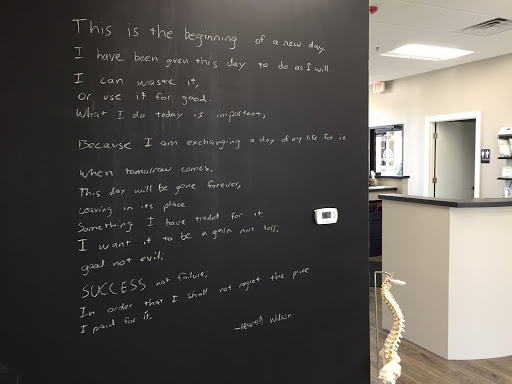 This is the beginning of a new day.
I have been given this day to do as I will.
I can waste it,
or use it for good.
What I do today is important,
Because I am exchanging a day of my life for it.
When tomorrow comes,
This day will be gone forever,
Leaving in its place
Something I have traded for it.
I want it to be a gain not loss;
good not evil;
SUCCESS not failure;
In order that I shall not regret the price
I paid for it.
Wilson